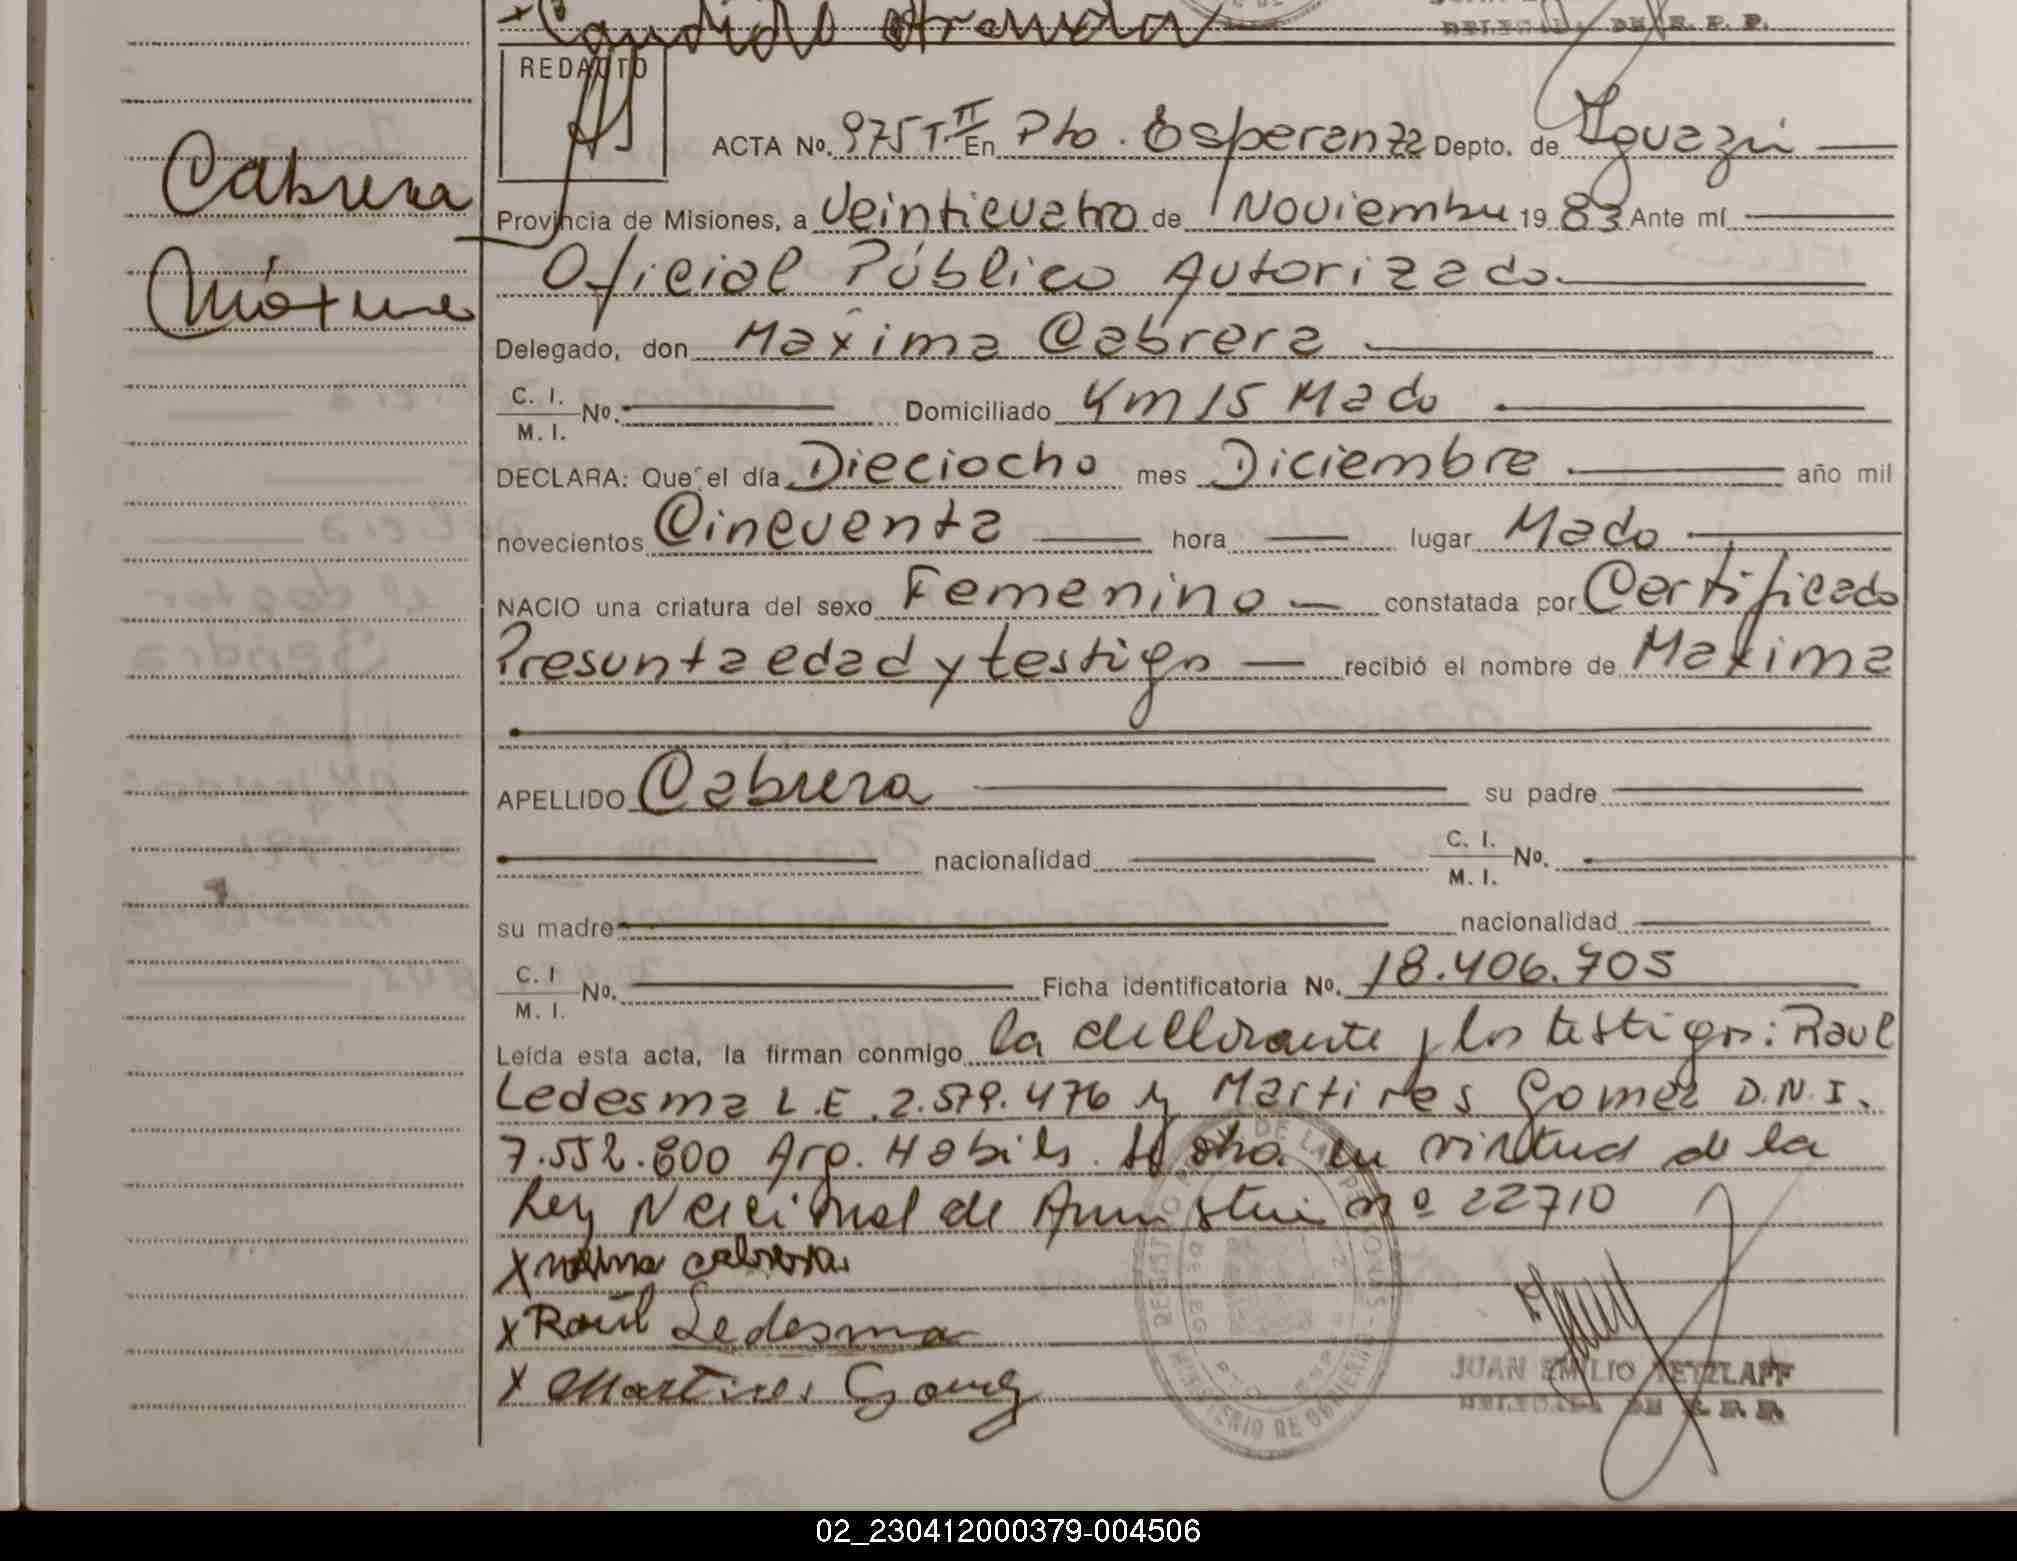 Candido Aranda
DELEGADA DE R. P. P.
REDACTO
ACTA No. 975 T II En Pto. Esperanza Depto. de Iguazú
Cabrera
Provincia de Misiones, a Veinticuatro de Noviembre 19 83 Ante mí
Oficial Público Autorizado
Máxima
Delegado, don Maxima Cabrera
C. I.
M. I. No. Domiciliado Km 15 Mado
DECLARA: Que el día Dieciocho mes Diciembre año mil
novecientos Cincuenta hora lugar Mado
NACIO una criatura del sexo Femenino constatada por Certificado
Presunta edad y testigo recibió el nombre de Maxima
APELLIDO Cabrera su padre
nacionalidad C. I.
M. I. No.
su madre nacionalidad
C. I
M. I. No. Ficha identificatoria No. 18.406.705
Leída esta acta, la firman conmigo la declarante y los testigos: Raul
Ledesma L.E. 2.579.476 y Martires Gomez D.N.I.
7.552.800 Arg. Habiles. en virtud de la
Ley Nacional de Amnistia nº 22710
x cabrera
x Raúl Ledesma
x Martires Gomez
REGISTRO DE LAS PERSONAS - MINISTERIO DE GOBIERNO
JUAN EMILIO TETZLAFF
DELEGADA DE R. P. P.
02_230412000379-004506